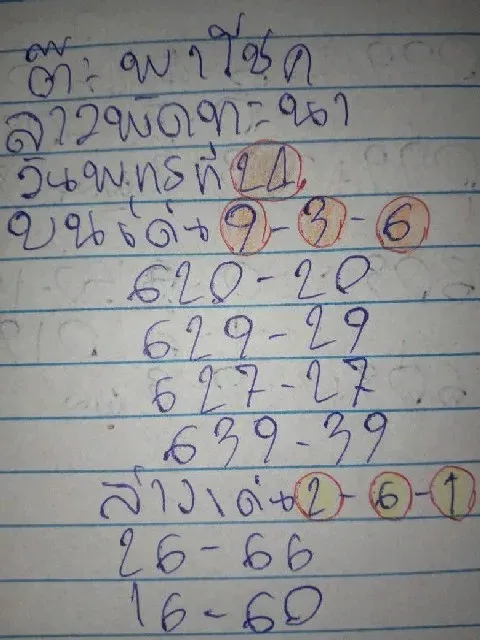 ต๊ะ พาโชค
ลาวพัดทะนา
วันพุทธที่ 24
บนเด่น 9-3-6
620-20
629-29
627-27
639-39
ล่างเด่น 2-6-1
26-66
16-60